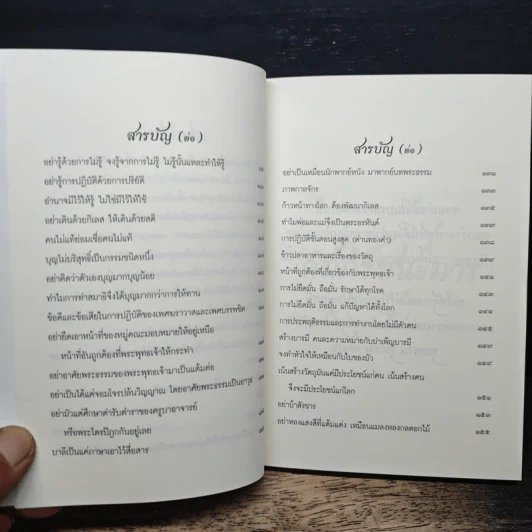 สารบัญ (ต่อ)
อย่ารู้ด้วยการไม่รู้ จงรู้จากการไม่รู้ ไม่รู้นั้นแหละทำให้รู้
อย่ารู้การปฏิบัติด้วยการปริยัติ
อำนาจมีไว้ให้รู้ ไม่ใช่มีไว้ให้ใช้
อย่าเดินด้วยกิเลส ให้เดินด้วยสติ
คนไม่แท้ย่อมเชื่อคนไม่แท้
บุญไม่บริสุทธิ์เป็นกรรมชนิดหนึ่ง
อย่าคิดว่าตัวเองบุญมากบุญน้อย
ทำไมการทำสมาธิจึงได้บุญมากกว่าการให้ทาน
ข้อดีและข้อเสียในการปฏิบัติของเพศฆราวาสและเพศบรรพชิต
อย่ายึดเอาหน้าที่ของหมู่คณะมอบหมายให้อยู่เหนือ
หน้าที่อันถูกต้องที่พระพุทธเจ้าให้กระทำ
อย่าอาศัยพระธรรมของพระพุทธเจ้ามาเป็นแต้มต่อ
อย่าเป็นได้แค่จอมโจรปล้นวิญญาณ โดยอาศัยพระธรรมเป็นอาวุธ
อย่ามัวแต่ศึกษาตำรับตำราของครูบาอาจารย์
หรือพระไตรปิฎกกันอยู่เลย
บาลีเป็นแค่ภาษาเอาไว้สื่อสาร
สารบัญ (ต่อ)
อย่าเป็นเหมือนนักพากย์หนัง มาพากย์บทพระธรรม ๑๓๑
ภาพกาลจักร ๑๓๓
ก้าวหน้าทางโลก ต้องพัฒนากิเลส ๑๓๕
ทำไมพ่อและแม่จึงเป็นพระอรหันต์ ๑๓๗
การปฏิบัติขั้นตอนสูงสุด (ด่านทองคำ) ๑๓๘
ข้าวปลาอาหารและเรื่องของวัตถุ ๑๓๙
หน้าที่ที่ถูกต้องที่เกี่ยวข้องกับพระพุทธเจ้า ๑๔๑
การไม่ยึดมั่น ถือมั่น รักษาได้ทุกโรค ๑๔๓
การไม่ยึดมั่น ถือมั่น แก้ปัญหาได้ทั้งโลก
การประพฤติธรรมและการทำงานโดยไม่มีตัวตน
สร้างบารมี คนละความหมายกับบำเพ็ญบารมี
จงทำหัวใจให้เหมือนกับใบของบัว ๑๔๙
เน้นสร้างวัตถุมันแค่มีประโยชน์แก่คน เน้นสร้างคน
จึงจะมีประโยชน์แก่โลก ๑๕๑
อย่าบ้าสังขาร ๑๕๓
อย่าหลงแสงสีที่แต้มแต่ง เหมือนแมลงหลงกลดอกไม้ ๑๕๕